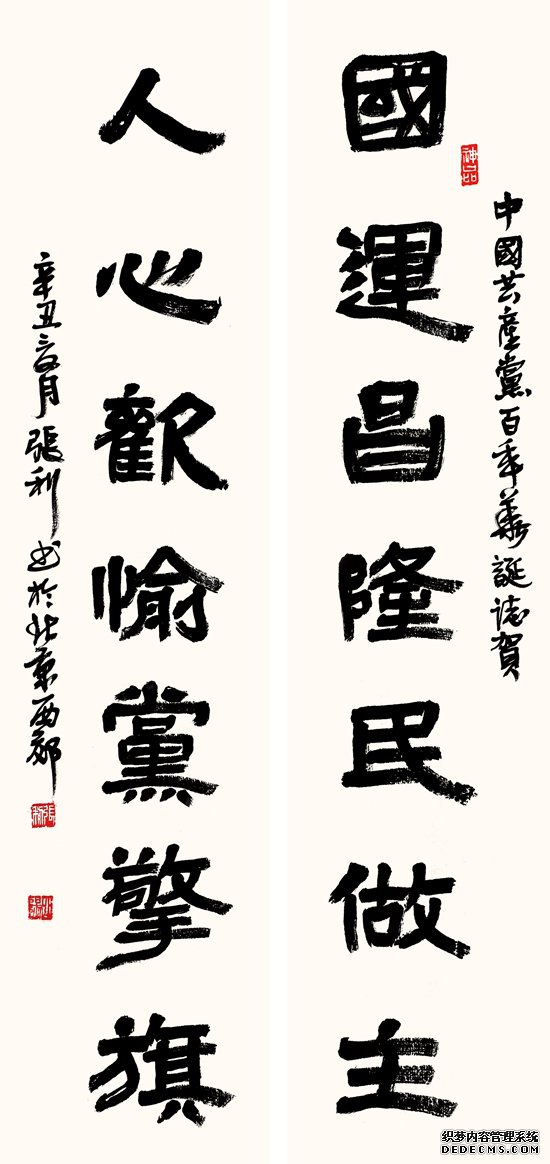 中國共產黨百年華誕誌賀
神品
國運昌隆民做主
人心歡愉黨擎旗
辛丑三月張利書於北京西郊
張利
织梦内容管理系统
DEDECMS.COM